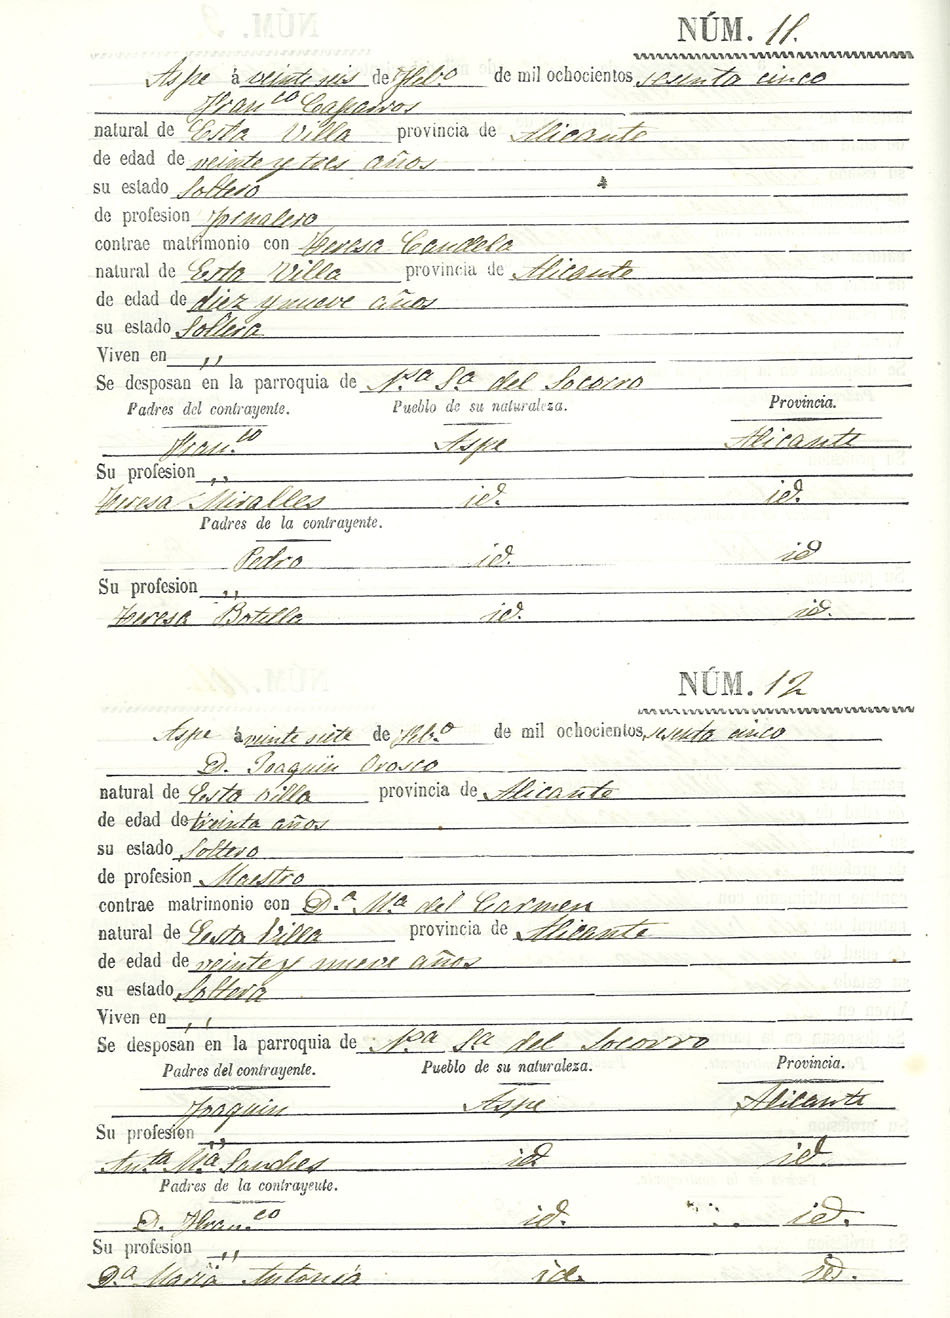 NÚM. 11.
Aspe á veinte seis de Feb.o de mil ochocientos sesenta cinco
Fran.co Caparros
natural de Esta Villa provincia de Alicante
de edad de veinte y tres años
su estado Soltero
de profesion Jornalero
contrae matrimonio con Teresa Candela
natural de Esta Villa provincia de Alicante
de edad de diez y nueve años
su estado Soltera
Viven en ,,
Se desposan en la parroquia de N.sa S.a del Socorro
Padres del contrayente. Pueblo de su naturaleza. Provincia.
Fran.co Aspe Alicante
Su profesion ,,
Teresa Miralles id. id.
Padres de la contrayente.
Pedro id. id
Su profesion ,,
Teresa Botella id. id.
NÚM. 12
Aspe á veinte siete de Feb.o de mil ochocientos sesenta cinco
D. Joaquin Orosco
natural de Esta Villa provincia de Alicante
de edad de treinta años
su estado Soltero
de profesion Maestro
contrae matrimonio con D.a M.a del Carmen
natural de Esta Villa provincia de Alicante
de edad de veinte y nueve años
su estado Soltera
Viven en ,,
Se desposan en la parroquia de N.sa S.a del Socorro
Padres del contrayente. Pueblo de su naturaleza. Provincia.
Joaquin Aspe Alicante
Su profesion ,,
Ant.a M.a Sanches id. id.
Padres de la contrayente.
D. Fran.co id. id.
Su profesion ,,
D.a Maria Antonia id. id.